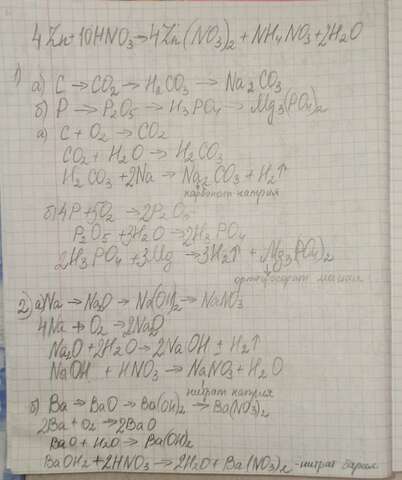 4Zn+10HNO₃→4Zn(NO₃)₂ + NH₄NO₃+3H₂O
1)
а) C → CO₂ → H₂CO₃ → Na₂CO₃
б) P → P₂O₅ → H₃PO₄ → Mg₃(PO₄)₂
а) C + O₂ → CO₂
CO₂ + H₂O → H₂CO₃
H₂CO₃ +2Na → Na₂CO₃ + H₂↑
карбонат натрия
б) 4P +5O₂ → 2P₂O₅
P₂O₅ +3H₂O → 2H₃PO₄
2H₃PO₄ +3Mg → 3H₂↑ + Mg₃(PO₄)₂
ортофосфат магния
2) а) Na → Na₂O → Na(OH)₂ → NaNO₃
4Na + O₂ → 2Na₂O
Na₂O +2H₂O → 2NaOH + H₂↑
NaOH + HNO₃ → NaNO₃ + H₂O
нитрат натрия
б) Ba → BaO → Ba(OH)₂ → Ba(NO₃)₂
2Ba + O₂ → 2BaO
BaO + H₂O → Ba(OH)₂
BaOH₂ +2HNO₃ → 2H₂O + Ba(NO₃)₂ -нитрат бария